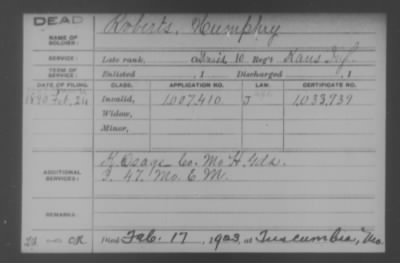 DEAD
NAME OF SOLDIER: Roberts, Humphry
SERVICE: Late rank, 10 Reg't Kans Inf.
TERM OF SERVICE: Enlisted , 1 Discharged , 1
DATE OF FILING. CLASS. APPLICATION NO. LAW. CERTIFICATE NO.
1890 Feb. 24 Invalid, 1,007,410 J 1,033,939
Widow,
Minor,
ADDITIONAL SERVICES: Osage Co. Mo. H. Gds.
47. Mo. E. M.
REMARKS:
Died Feb. 17, 1903, at Tuscumbia, Mo.